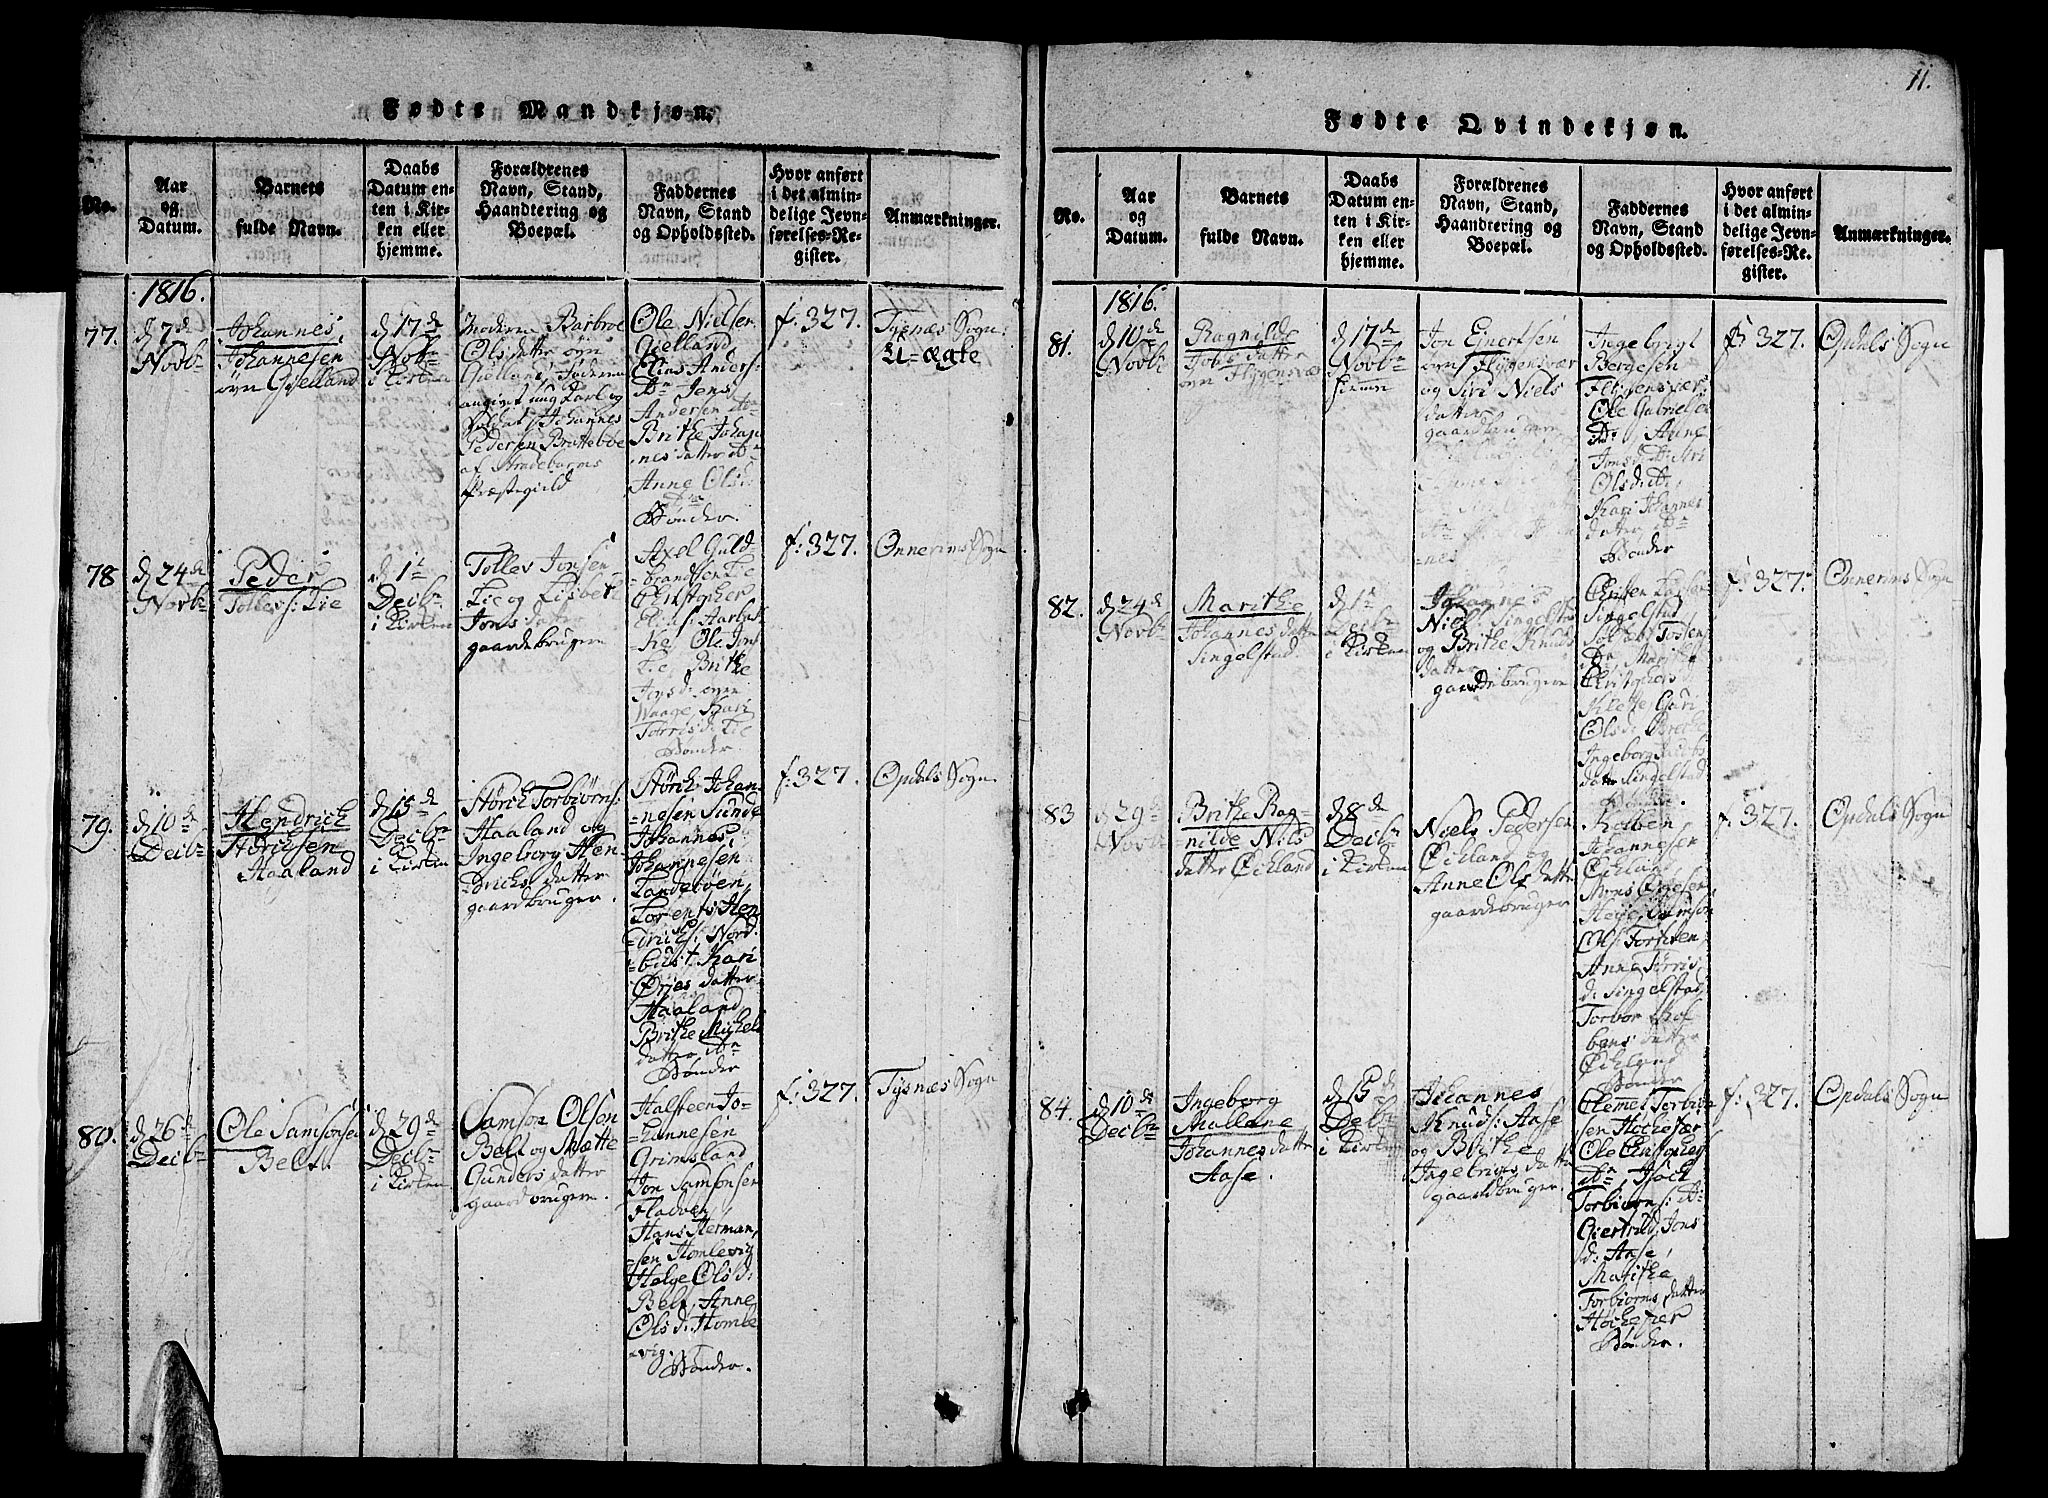 Fødte Mandkjøn.
No.
Aar
og
Datum.
Barnets
fulde Navn.
Daabs
Datum en-
ten i Kir-
ken eller
hjemme.
Forældrenes
Navn, Stand,
Haandtering og
Boepæl.
Faddernes
Navn, Stand
og Opholdssted.
Hvor anført
i det almin-
delige Jevn-
førelses-Re-
gister.
Anmærkninger.
1816.
77.
d 7de
Novbr
Johannes,
Johannesen
øvre Gielland
d 17de
Novbr
i Kirken
Moderen Barbroe
Olsdatter øvre
Gielland, Faderen
angivet ung Karl og
Soldat Johannes
Pedersen Bratteboe
af Strandebarms
Præstegield
Ole Nielsen
Gielland,
Elias Anders:
Dn Jens
Andersen Dn
Brithe Johan
nes datter Dn
Anne Olsd:
Dn
Bønder.
f: 327.
Tysnæs Sogn.
U=ægte
78
d 24de
Novbr
Peder
Tolles: Lie
d 1te
Decbr
i Kirken
Tolles Jonsen
Lie og Lisbeth
Jons datter
gaardbrugere
Axel Guld=
brandsen Lie
Christopher
Elias:
Ole Jons
Lie, Brithe
Jonsd: øvre
Waage, Kari
Torrisd: Lie
Bønder
f: 327.
Onnerims Sogn
79.
d 10de
Decbr
Hendrich
Størksen
Haaland
d 15de
Decbr
i Kirken
Størk Torbiørns:
Haaland og
Ingeborg Hen
=drichs datter
gaardbruger.
Størk Johan
=nesen Sunde
Johannes
Johannesen
Landebøen
Lorents: Hen
=drichs: Nord:
=bust. Kari
Ørjes datter
Haaland
Brithe Michels
datter Dn
Bønder
f: 327.
Opdals Sogn
80.
d 26de
Decbr
Ole Samsonsen
Belt.
d 29de
Decbr
i Kirken
Samson Olsen
Belt og Mætte
Gunders datter
Gaardbrugere.
Halsteen Jo=
hannesen
Grimsland
Jon Samsonsen
Fladven
Hans Herman,
=sen Homlevig
Helge Olsd:
Belt, Anne
Olsd: Homle
=vig.
Bønder.
f: 327.
Tysnæs Sogn
11.
Fødte Qvindekjøn.
No.
Aar
og
Datum.
Barnets
fulde Navn.
Daabs
Datum en-
ten i Kir-
ken eller
hjemme.
Forældrenes
Navn, Stand,
Haandtering og
Boepæl.
Faddernes
Navn, Stand
og Opholdssted.
Hvor anført
i det almin-
delige Jevn-
førelses-Re-
gister.
Anmærkninger.
1816.
81.
d 10de
Novbr
Ragnilde
datter
øvre Flygensvær
d 17de
Novbr
Jon Ejnertsen
øvre Flygensvær
og Siri Niels
datter
gaardbrugere
Ingebrigt
Bergesen
Flygensvær
Ole Gabrielsen
Dn Anne
Jonsd: Dn Siri
Olsd: Dn
Kari Johannes
datter Dn
Bønder
f: 327.
Opdals Sogn
82.
d 24de
Novbr
Marithe
Johannes datter
Singelstad
d 1te
Decbr
i Kirken
Johannes
Niels: Singelstad
og Brithe Knuds
datter
gaardbrugere
Singelstad
Dn Marithe
Christophers
Klette, Guri
Olsd:
Ingeborg Jacobs
datter Singelstad
Bønder.
f: 327.
Onnerims Sogn
83
d 29de
Novbr
Brithe Rag=
nilde Nils
datter Øikland
d 8de
Decbr
i Kirken
Niels Pedersen
Øikland og
Anne Ols datter
gaardbruger
Kolben
Johannesen
Øikland,
Samson
Ols:
Anne Torris
d: Singelstad
Torbor Kol
bens datter
Øikland
Bønder
f: 327.
Opdals Sogn
84.
d 10de
Decbr
Ingeborg
Mallene
Johannes datter
Aase.
d 15de
Decbr
i Kirken
Johannes
Knuds: Aase
og Brithe
Ingebrigs datter
gaardbruger.
Clemet Torbiør
sen Hochesær
Ole Christophers
Dn, Isack
Torbiørns: Dn
Giertrud Jons
d: Aase,
Marithe
Torbiørns datter
Hochesær
Bønder.
f: 327.
Opdals Sogn